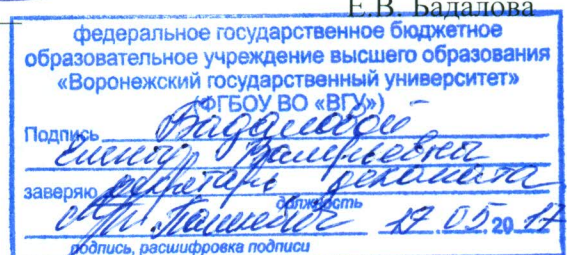 Е.В. Бадалова
федеральное государственное бюджетное
образовательное учреждение высшего образования
«Воронежский государственный университет»
(ФГБОУ ВО «ВГУ»)
Подпись Бадаловой
Елены Валерьевны
заверяю секретарь деканата
должность
19.05.2017
подпись, расшифровка подписи